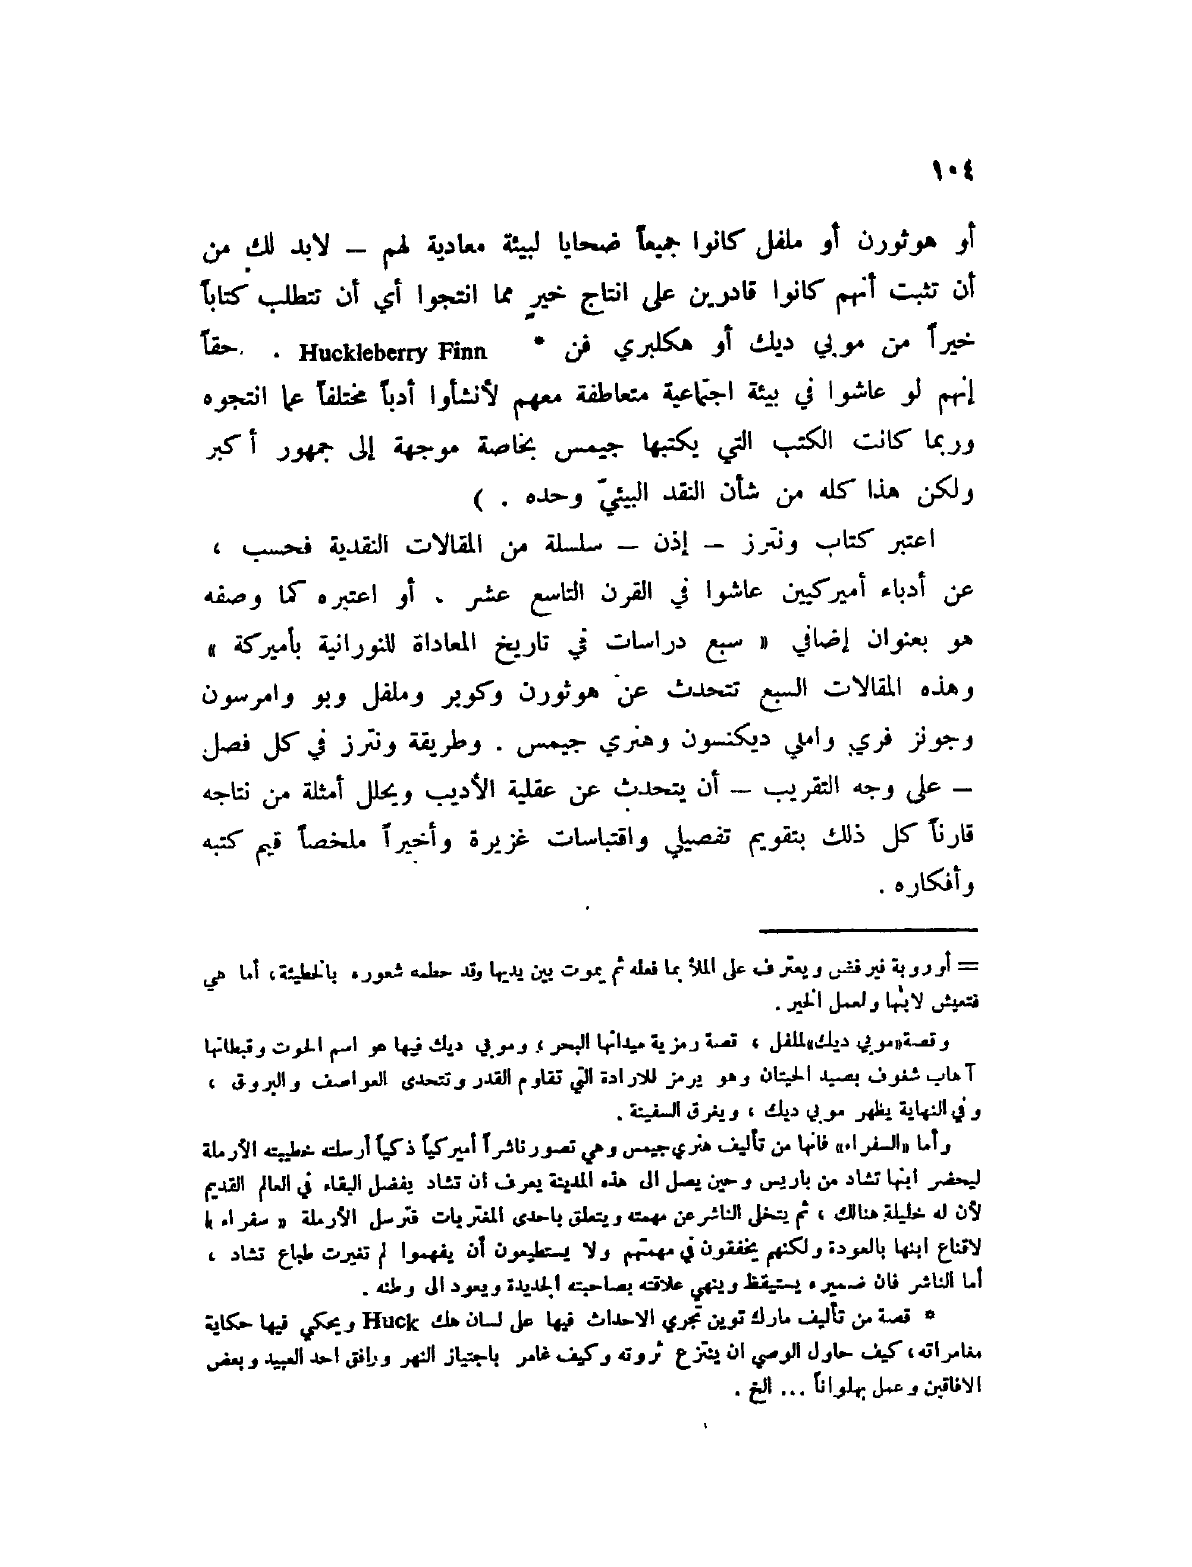 ١٠٤
أو هوثورن أو ملفل كانوا جميعاً ضحايا لبيئة معادية لهم – لابد لك من
أن تثبت أنهم كانوا قادرين على انتاج خيرٍ مما انتجوا أي أن تتطلب كتاباً
خيراً من موبي ديك أو هكلبري فن * Huckleberry Finn . حقاً
إنهم لو عاشوا في بيئة اجتماعية متعاطفة معهم لأنشأوا أدباً مختلفاً عما انتجوه
وربما كانت الكتب التي يكتبها جيمس بخاصة موجهة إلى جمهور أكبر
ولكن هذا كله من شأن النقد البيئيّ وحده . )
اعتبر كتاب ونترز – إذن – سلسلة من المقالات النقدية فحسب ،
عن أدباء أميركيين عاشوا في القرن التاسع عشر . أو اعتبره كما وصفه
هو بعنوان إضافي « سبع دراسات في تاريخ المعاداة للنورانية بأميركة »
وهذه المقالات السبع تتحدث عن هوثورن وكوبر وملفل وبو وامرسون
وجونز فري واملي ديكنسون وهنري جيمس . وطريقة ونترز في كل فصل
– على وجه التقريب – أن يتحدث عن عقلية الأديب ويحلل أمثلة من نتاجه
قارناً كل ذلك بتقويم تفصيلي واقتباسات غزيرة وأخيراً ملخصاً قيم كتبه
وأفكاره .
= أوروبة فيرفض ويعترف على الملأ بما فعله ثم يموت بين يديها وقد حطمه شعوره بالخطيئة، أما هي
فتعيش لابنها ولعمل الخير .
وقصة «موبي ديك» لملفل ، قصة رمزية ميدانها البحر ، وموبي ديك فيها هو اسم الحوت وقبطانها
آهاب شغوف بصيد الحيتان وهو يرمز للارادة التي تقاوم القدر وتتحدى العواصف والبروق ،
وفي النهاية يظهر موبي ديك ، ويغرق السفينة .
وأما «السفراء» فانها من تأليف هنري جيمس وهي تصور ناشراً أميركياً ذكياً أرسلته خطيبته الأرملة
ليحضر ابنها تشاد من باريس وحين يصل الى هذه المدينة يعرف ان تشاد يفضل البقاء في العالم القديم
لأن له خليلة هنالك ، ثم يتخلى الناشر عن مهمته ويتعلق باحدى المغتربات فترسل الأرملة « سفراء »
لاقناع ابنها بالعودة ولكنهم يخفقون في مهمتهم ولا يستطيعون أن يفهموا لم تغيرت طباع تشاد ،
أما الناشر فان ضميره يستيقظ وينهي علاقته بصاحبته الجديدة ويعود الى وطنه .
* قصة من تأليف مارك توين تجري الاحداث فيها على لسان هك Huck ويحكي فيها حكاية
مغامراته، كيف حاول الوصي ان ينتزع ثروته وكيف غامر باجتياز النهر ورافق احد العبيد وبعض
الافاقين وعمل بهلواناً ... الخ .